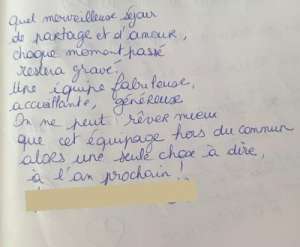 quel merveilleux séjour
de partage et d'amour,
chaque moment passé
restera gravé.
Une équipe fabuleuse,
accueillante, généreuse
On ne peut rêver mieux
que cet équipage hors du commun
alors une seule chose à dire,
à l'an prochain !!